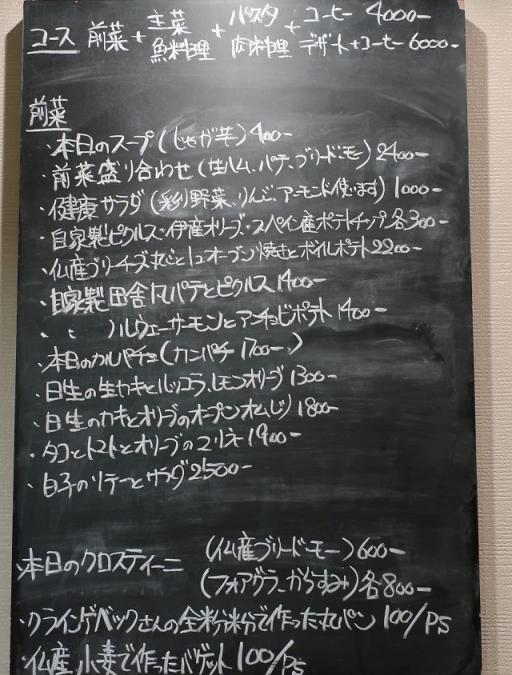 コース 前菜 + 主菜 + パスタ + コーヒー 4000-
魚料理 肉料理 デザート+コーヒー 6000-
前菜
・本日のスープ(じゃが芋)400-
・前菜盛り合わせ(生ハム、パテ、ブリードモー)2400-
・健康サラダ(彩り野菜、りんご、アーモンド使います)1000-
・自家製ピクルス・伊産オリーブ・スペイン産ポテトチップ各300-
・仏産ブリーチーズ丸ごと1コオーブン焼きとボイルポテト2200-
・自家製田舎風パテとピクルス1400-
・〃 ノルウェーサーモンとアンチョビポテト1400-
・本日のカルパチョ(カンパチ1700-)
・日生の生カキとルッコラ、レモンオリーブ1300-
・日生のカキとオリーブのオーブンオムレツ1800-
・タコとトマトとオリーブのマリネ1900-
・白子のソテーとサラダ2500-
・本日のクロスティーニ (仏産ブリードモー)600-
(フォアグラ、からすみ)各800-
・クラインゲベックさんの全粒粉で作った丸パン 100/PS
・仏産小麦で作ったバゲット 100/PS